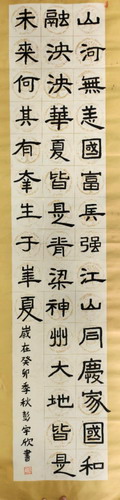 山河無恙國富兵强江山同慶家國和
融泱泱華夏皆是脊梁神州大地皆是
未來何其有幸生于華夏
歲在癸卯季秋彭宇欣書